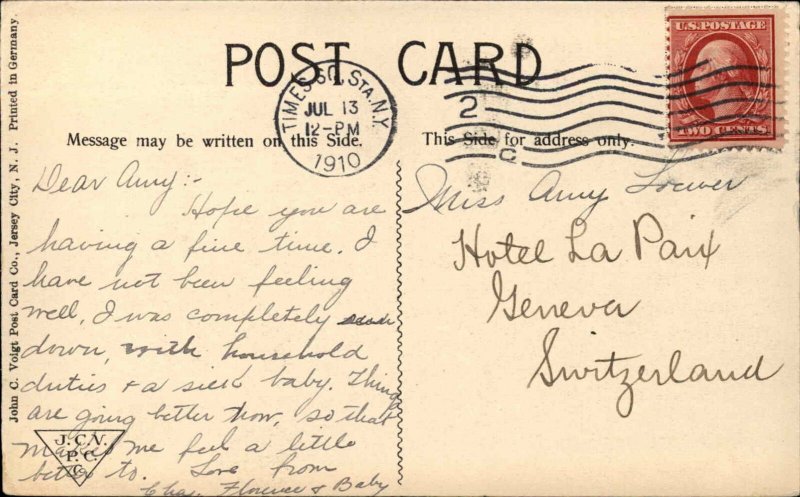 POST CARD
Message may be written on this Side.
This Side for address only.
TIMES SQ. STA. N.Y.
JUL 13
12-PM
1910
2
U.S. POSTAGE
TWO CENTS
John C. Voigt Post Card Co., Jersey City, N. J. Printed in Germany.
Dear Amy:-
Hope you are
having a fine time. I
have not been feeling
well, I was completely
down, with household
duties & a sick baby. Things
are going better now, so that
makes me feel a little
better to. Love from
Chas. Florence & Baby
J.C.V.
P.C.
C
Miss Amy
Hotel La Paix
Geneva
Switzerland